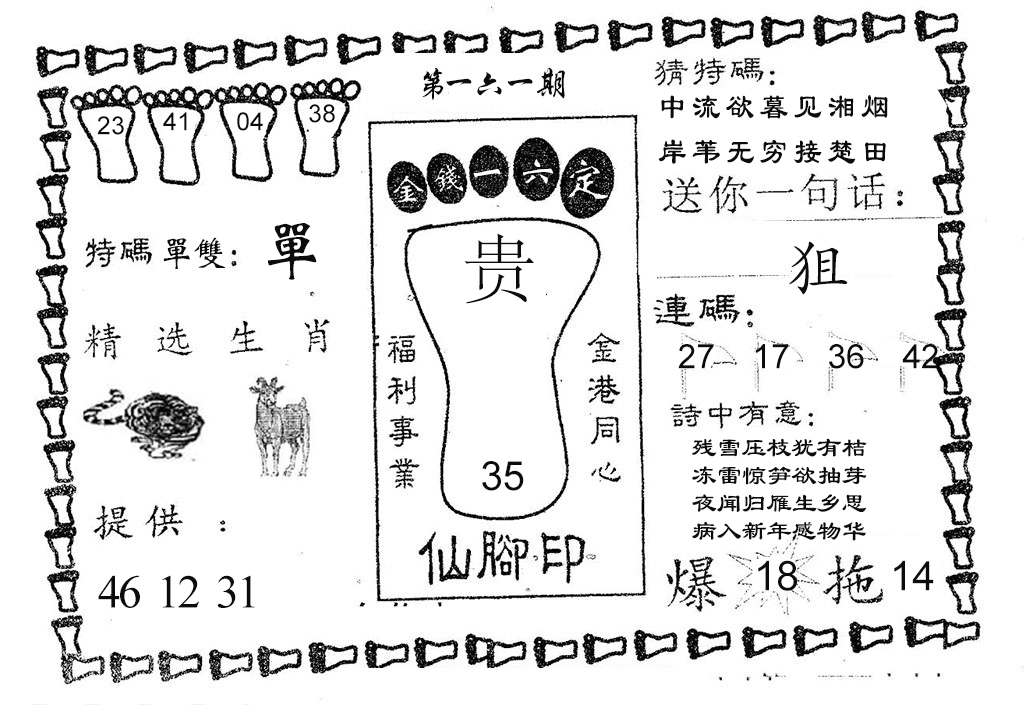 第一六一期
23 41 04 38
特碼單雙: 單
精选生肖
提供 :
46 12 31
金錢一六定
贵
福利事業
金港同心
35
仙腳印
猜特碼:
中流欲暮见湘烟
岸苇无穷接楚田
送你一句话:
狙
連碼:
27 17 36 42
詩中有意:
残雪压枝犹有桔
冻雷惊笋欲抽芽
夜闻归雁生乡思
病入新年感物华
爆 18 拖 14